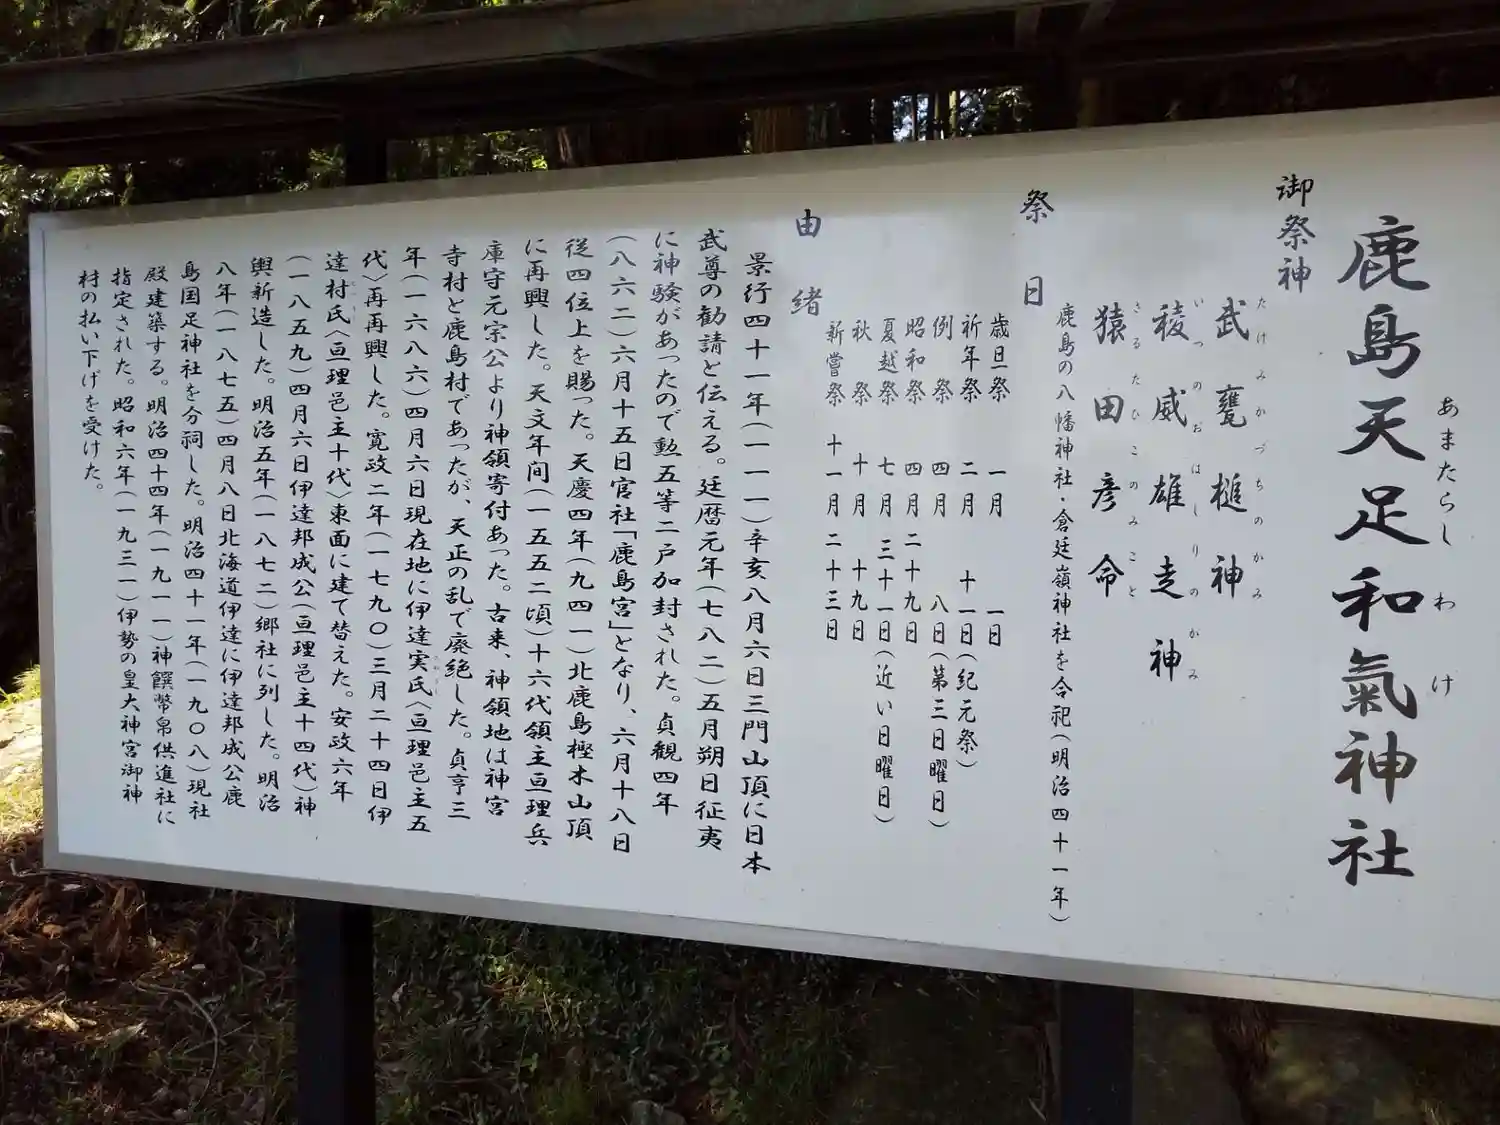 鹿島天足和氣神社
あまたらしわけ
御祭神
武甕槌神
たけみかづちのかみ
稜威雄走神
いつのおはしりのかみ
猿田彦命
さるたひこのみこと
鹿島の八幡神社・倉廷嶺神社を合祀(明治四十一年)
祭日
歳旦祭 一月 一日
祈年祭 二月 十一日(紀元祭)
例祭 四月 八日(第三日曜日)
昭和祭 四月二十九日
夏越祭 七月三十一日(近い日曜日)
秋祭 十月 十九日
新嘗祭 十一月二十三日
由緒
景行四十一年(一一一)辛亥八月六日三門山頂に日本
武尊の勧請と伝える。延暦元年(七八二)五月朔日征夷
に神験があったので勲五等二戸加封された。貞観四年
(八六二)六月十五日官社「鹿島宮」となり、六月十八日
従四位上を賜った。天慶四年(九四一)北鹿島樫木山頂
に再興した。天文年間(一五五二頃)十六代領主亘理兵
庫守元宗公より神領寄付あった。古来、神領地は神宮
寺村と鹿島村であったが、天正の乱で廃絶した。貞享三
年(一六八六)四月六日現在地に伊達実氏〈亘理邑主五
代〉再再興した。寛政二年(一七九〇)三月二十四日伊
達村氏〈亘理邑主十代〉東面に建て替えた。安政六年
(一八五九)四月六日伊達邦成公(亘理邑主十四代)神
輿新造した。明治五年(一八七二)郷社に列した。明治
八年(一八七五)四月八日北海道伊達に伊達邦成公鹿
島国足神社を分祠した。明治四十一年(一九〇八)現社
殿建築する。明治四十四年(一九一一)神饌幣帛供進社に
指定された。昭和六年(一九三一)伊勢の皇大神宮御神
村の払い下げを受けた。